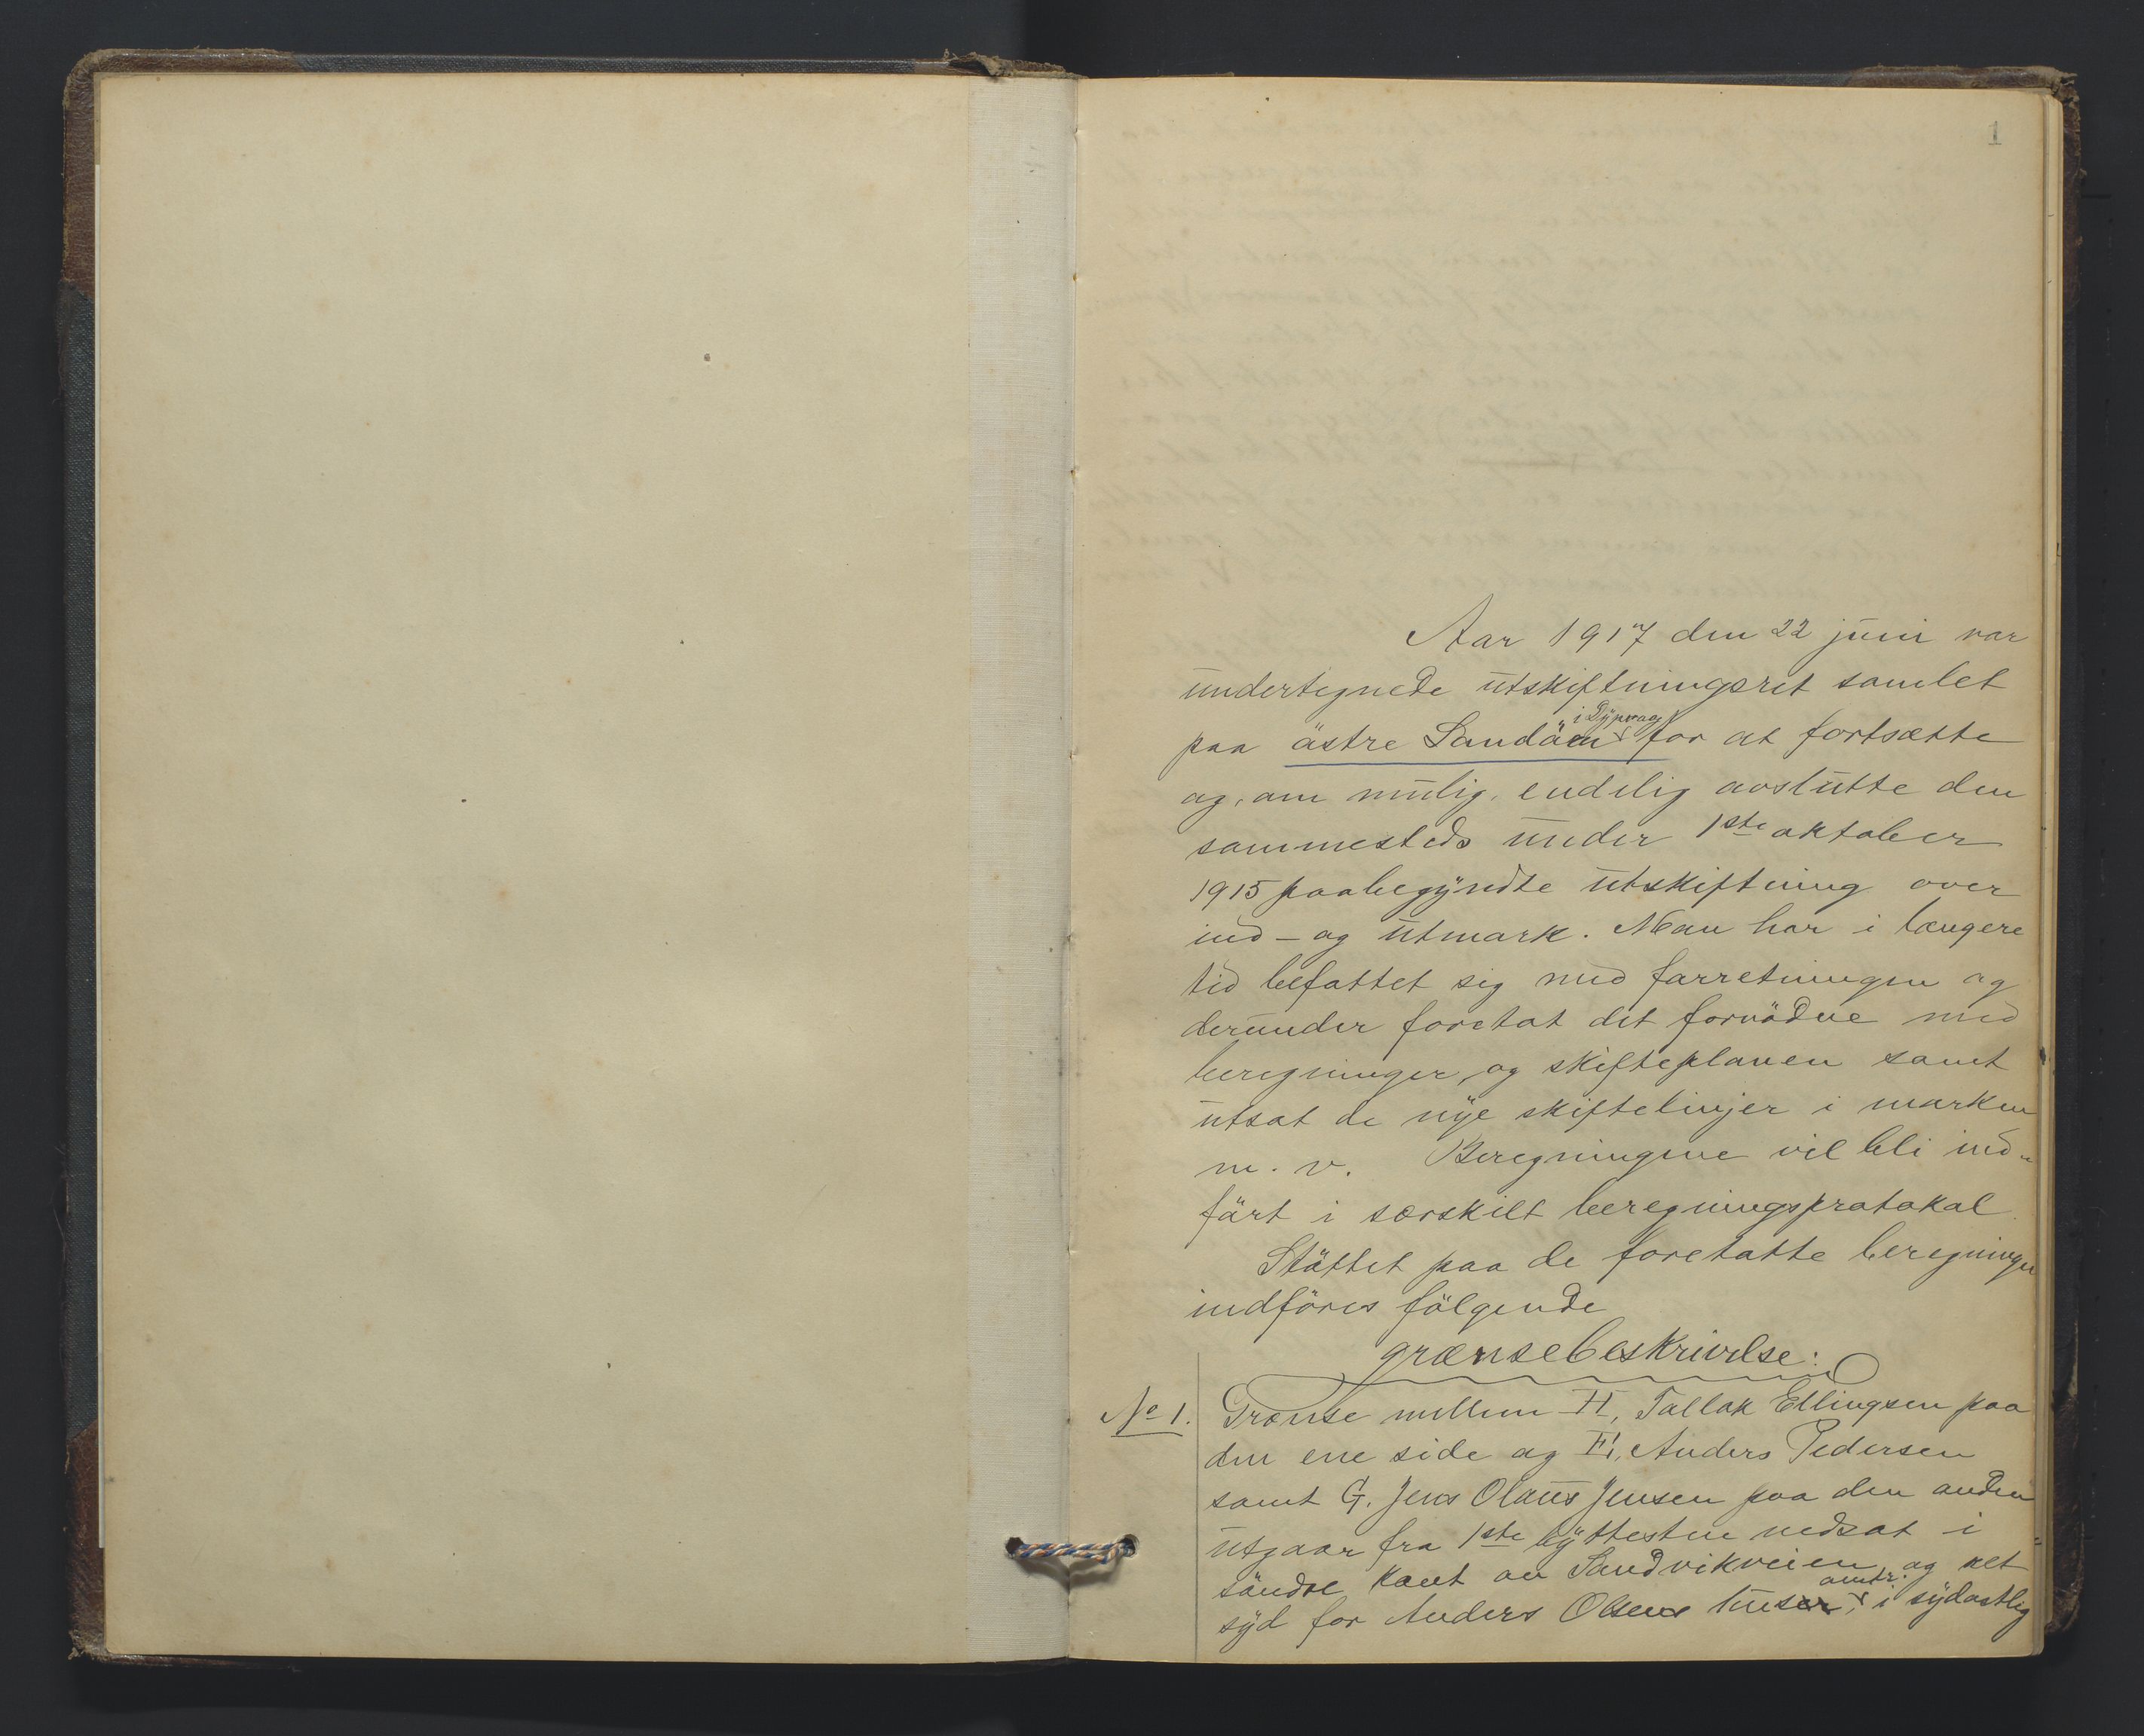 1
Aar 1917 den 22 juni var
undertegnede utskiftningsret samlet
paa östre Sandöen i Dypvag for at fortsætte
og, om mulig, endelig avslutte den
sammesteds under 1ste oktober
1915 paabegyndte utskiftning over
ind- og utmark. Man har i længere
tid befattet sig med forretningen og
derunder foretat det fornödne med
beregninger og skifteplanen samt
utsat de nye skiftelinjer i marken
m. v. Beregningene vil bli ind-
fört i særskilt beregningsprotokol.
Stöttet paa de foretatte beregninger
indföres fölgende
grænsebeskrivelse:
No 1. Grænse mellem H, Tallak Ellingsen paa
den ene side og F, Anders Pedersen
samt G. Jens Olaus Jensen paa den anden
utgaar fra 1ste byttesten nedsat i
söndre kant av Sandvikveien og ret
syd for Anders Olsens huser omtr. i sydostlig